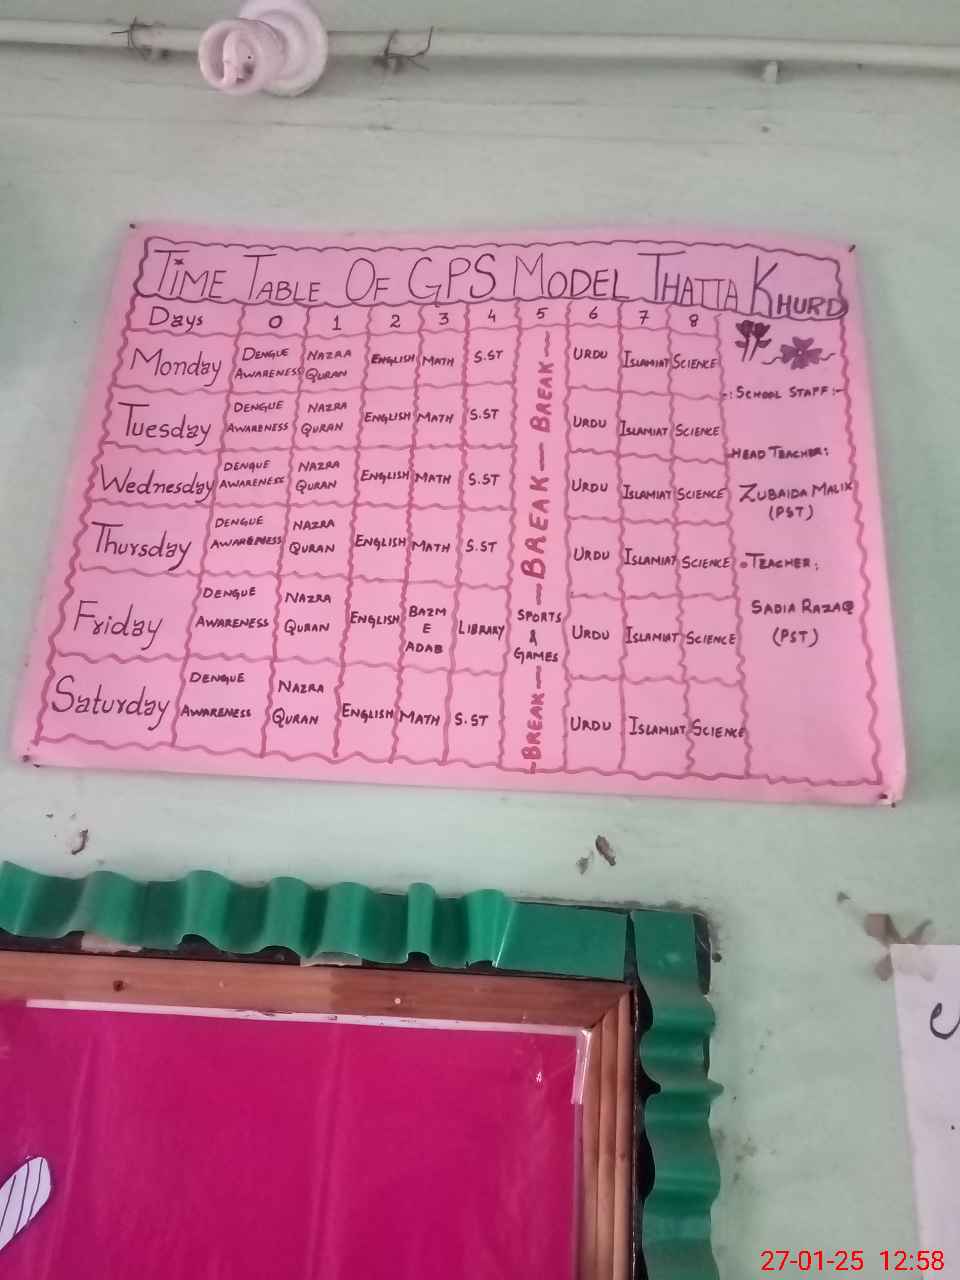 TIME TABLE OF GPS MODEL THATTA KHURD
Days 0 1 2 3 4 5 6 7 8
Monday DENGUE AWARENESS NAZRA QURAN ENGLISH MATH S.ST BREAK URDU ISLAMIAT SCIENCE
Tuesday DENGUE AWARENESS NAZRA QURAN ENGLISH MATH S.ST URDU ISLAMIAT SCIENCE
Wednesday DENGUE AWARENESS NAZRA QURAN ENGLISH MATH S.ST BREAK URDU ISLAMIAT SCIENCE
Thursday DENGUE AWARENESS NAZRA QURAN ENGLISH MATH S.ST URDU ISLAMIAT SCIENCE
Friday DENGUE AWARENESS NAZRA QURAN ENGLISH BAZM E ADAB LIBRARY SPORTS & GAMES URDU ISLAMIAT SCIENCE
Saturday DENGUE AWARENESS NAZRA QURAN ENGLISH MATH S.ST BREAK URDU ISLAMIAT SCIENCE
-: SCHOOL STAFF :-
HEAD TEACHER:
ZUBAIDA MALIK
(PST)
TEACHER:
SADIA RAZAQ
(PST)
27-01-25 12:58